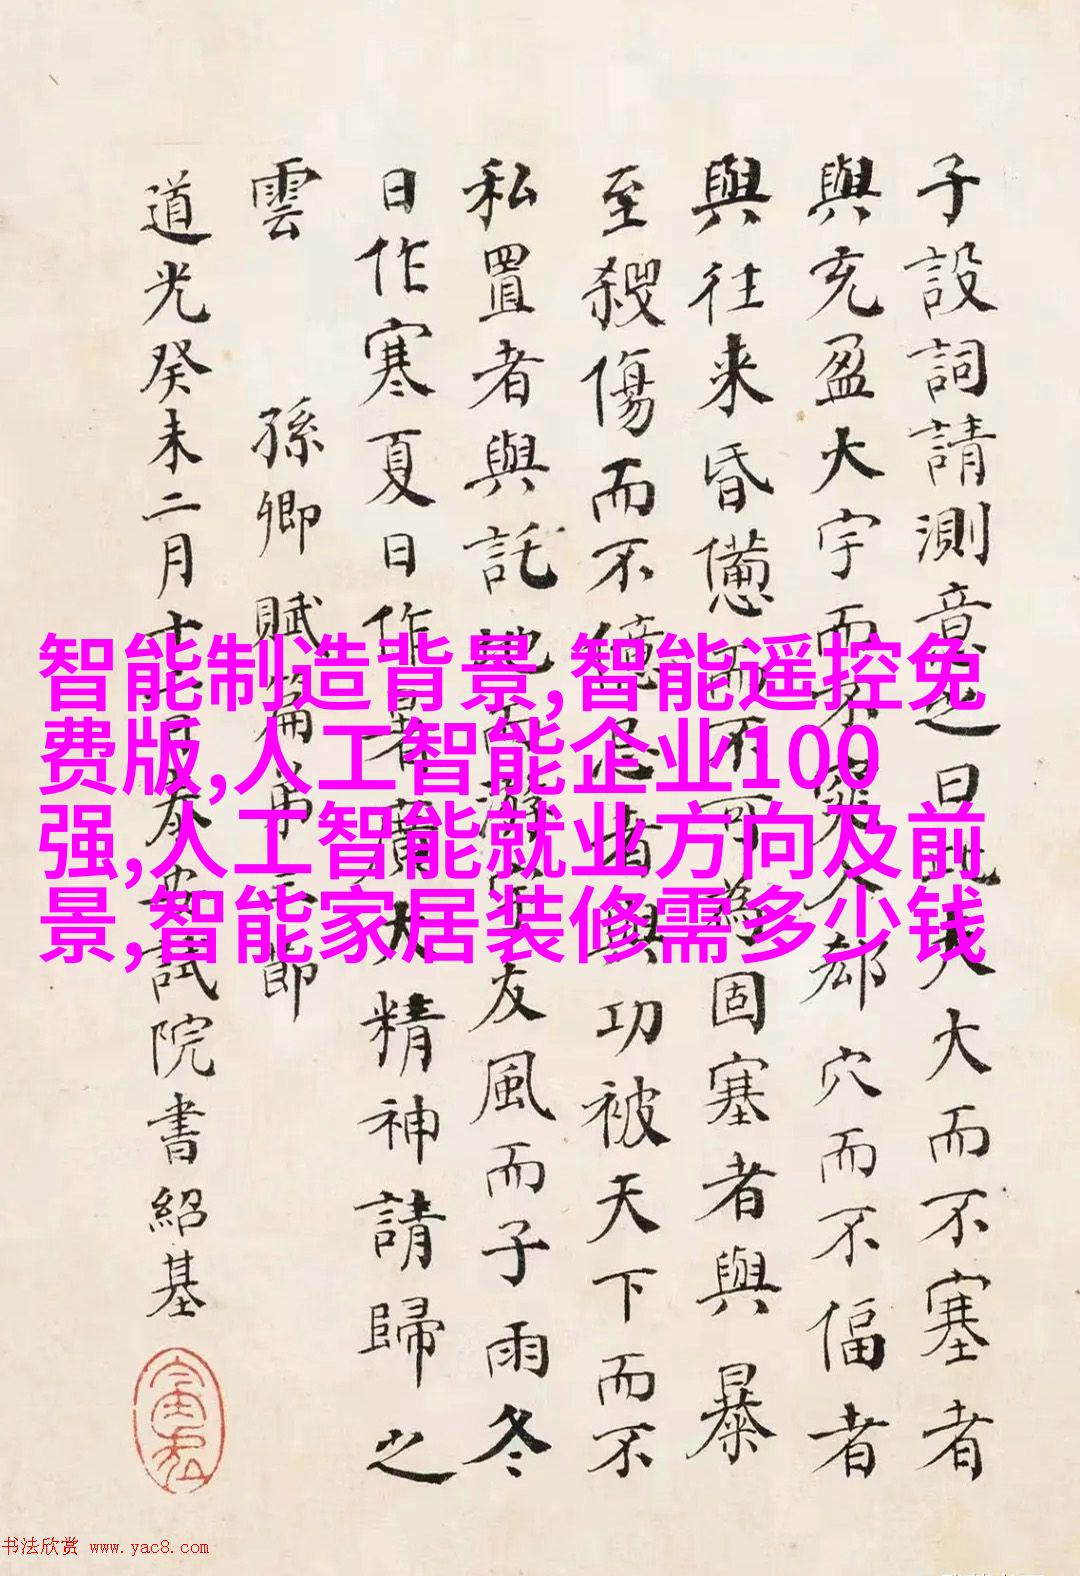 子設詞請測意之曰此夫大而不塞者
與充盈大宇而不窕入郄穴而不偪者
與往来昏憊而不可為固塞者與暴
至殺傷而不億忌者與功被天下而不
私置者與託地而游宇友風而子雨冬
日作寒夏日作暑廣大精神請歸之
雲 孫卿賦篇弟三節
道光癸未二月十日泰安試院書紹基
智能制造背景,智能遥控免
费版,人工智能企业100
强,人工智能就业方向及前
景,智能家居装修需多少钱
书法欣赏 www.yac8.com